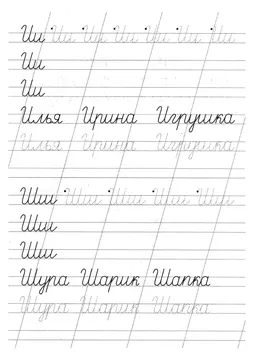 Ии Ии Ии Ии Ии Ии Ии
Ии
Ии
Илья Ирина Игрушка
Илья Ирина Игрушка
Шш Шш Шш Шш Шш
Шш
Шш
Шура Шарик Шапка
Шура Шарик Шапка